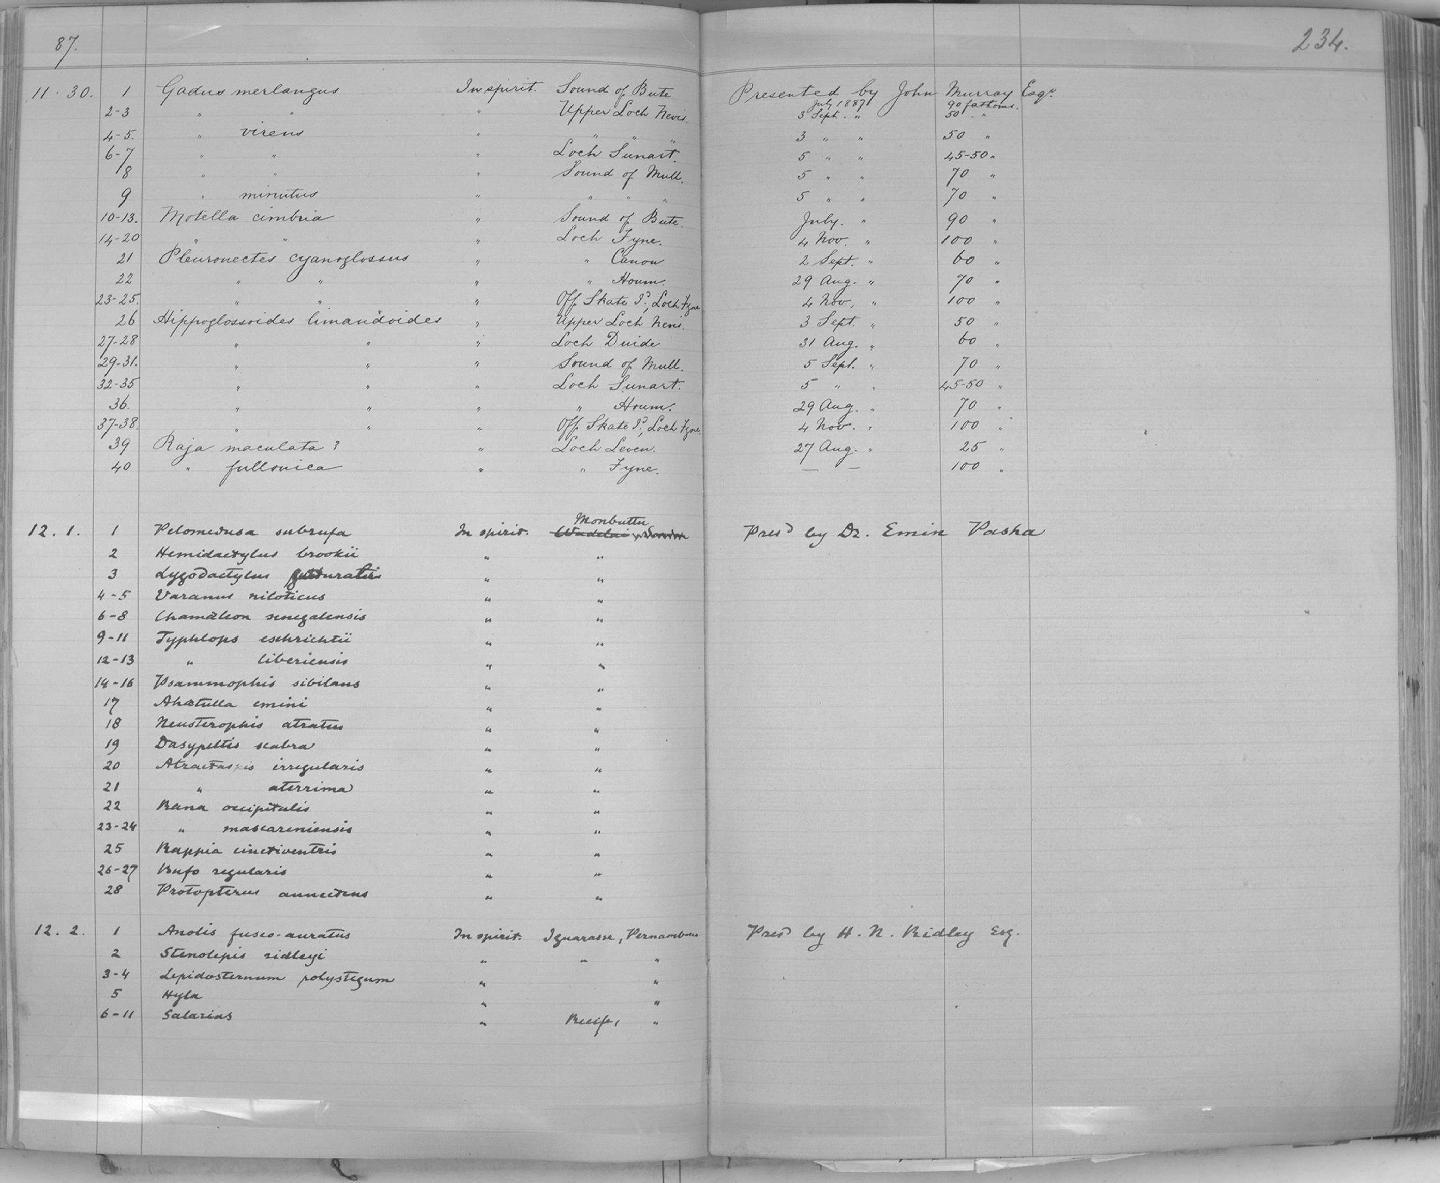 87.
234.
11. 30. 1 Gadus merlangus In spirit. Sound of Bute Presented by John Murray Esqr.
July 1887 90 fathoms.
2-3 " " " Upper Loch Nevis. 3 Sept. " 50 "
4-5. " virens " " " " 3 " " 50 "
6-7 " " " Loch Sunart. 5 " " 45-50 "
8 " " " Sound of Mull. 5 " " 70 "
9 " minutus " " " " 5 " " 70 "
10-13. Motella cimbria " Sound of Bute. July. " 90 "
14-20 " " " Loch Fyne. 4 Nov. " 100 "
21 Pleuronectes cyanoglossus " " Canon 2 Sept. " 60 "
22 " " " " Hourn. 29 Aug. " 70 "
23-25. " " " Off Skate Pt., Loch Fyne 4 Nov. " 100 "
26 Hippoglossoides limandoides " Upper Loch Nevis. 3 Sept. " 50 "
27-28 " " " Loch Duide 31 Aug. " 60 "
29-31. " " " Sound of Mull. 5 Sept. " 70 "
32-35 " " " Loch Sunart. 5 " " 45-50 "
36. " " " " Hourn. 29 Aug. " 70 "
37-38 " " " Off Skate Pt., Loch Fyne. 4 Nov. " 100 "
39 Raja maculata ? " Loch Leven. 27 Aug. " 25 "
40 " fullonica " " Fyne. — — 100 "
Monbuttu
12. 1. 1 Pelomedusa subrufa In spirit. Wadelai Presd by Dr. Emin Pasha
2 Hemidactylus brookii " "
3 Lygodactylus gutturalis " "
4-5 Varanus niloticus " "
6-8 Chamæleon senegalensis " "
9-11 Typhlops eschrichtii " "
12-13 " liberiensis " "
14-16 Psammophis sibilans " "
17 Ahætulla emini " "
18 Neusterophis atratus " "
19 Dasypeltis scabra " "
20 Atractaspis irregularis " "
21 " aterrima " "
22 Rana occipitalis " "
23-24 " mascareniensis " "
25 Rappia cinctiventris " "
26-27 Bufo regularis " "
28 Protopterus annectens " "
12. 2. 1 Anolis fusco-auratus In spirit. Iguarasse, Pernambuco Presd by H. N. Ridley Esq.
2 Stenolepis ridleyi " " "
3-4 Lepidosternum polystegum " "
5 Hyla " "
6-11 Salarias " Recife, "